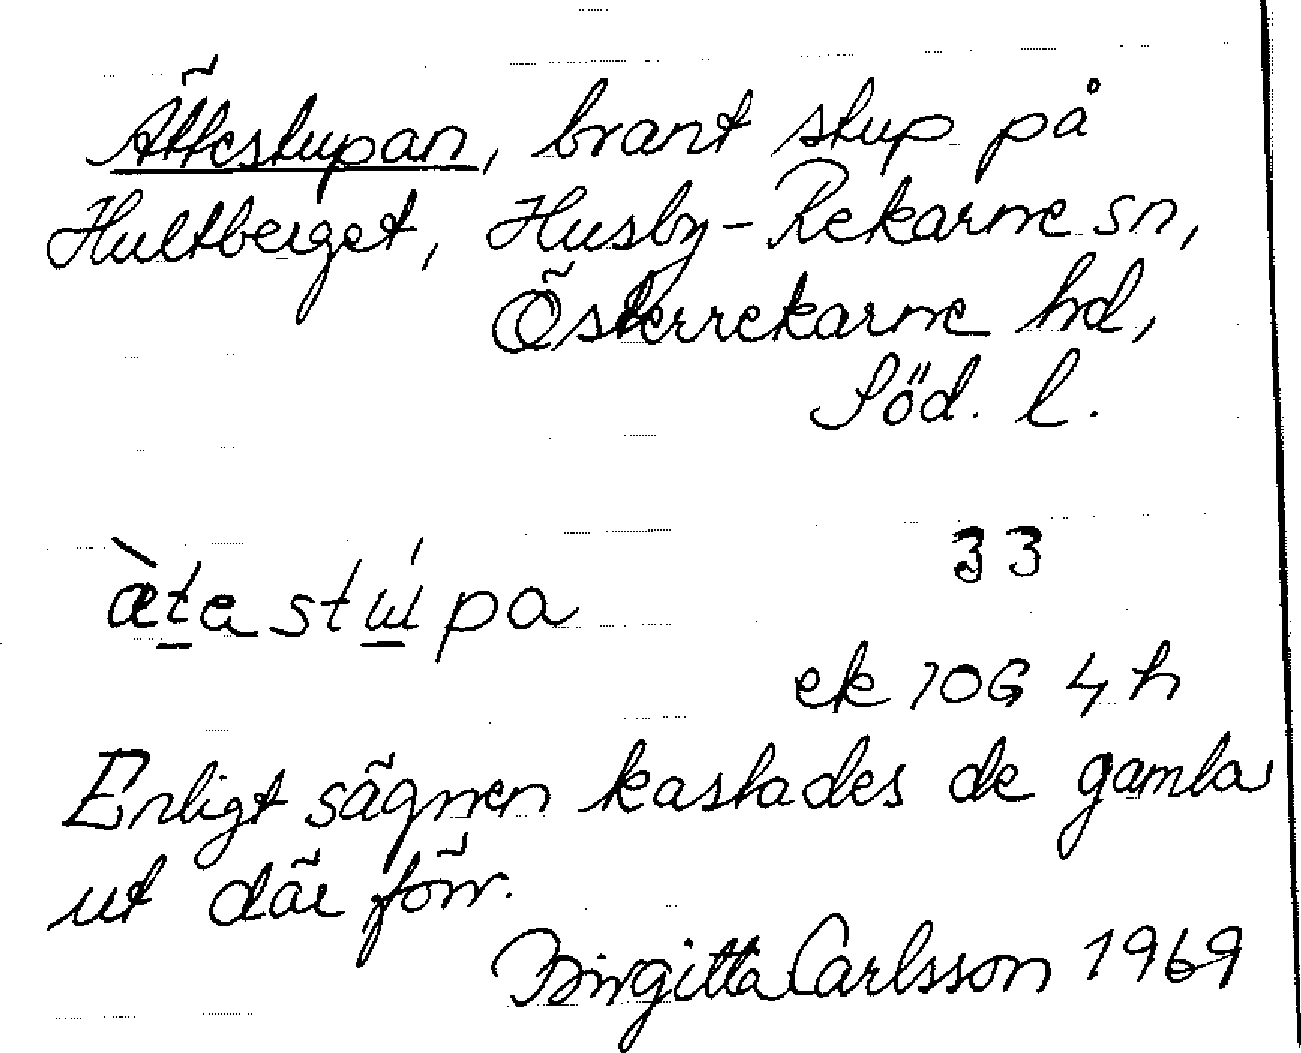 Ättestupan, brant stup på
Hultberget, Husby-Rekarne sn,
Österrekarne hd,
Söd. l.
33
ek 10G 4h
Enligt sägnen kastades de gamla
ut där förr.
Birgitta Carlsson 1969